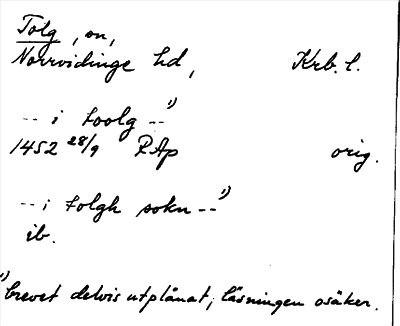 Tolg, sn,
Norrvidinge hd, Krb. l.
-- i toolg --¹)
1452 28/9 RAp orig.
-- i tolgh sokn --¹)
ib.
¹) brevet delvis utplånat; läsningen osäker.